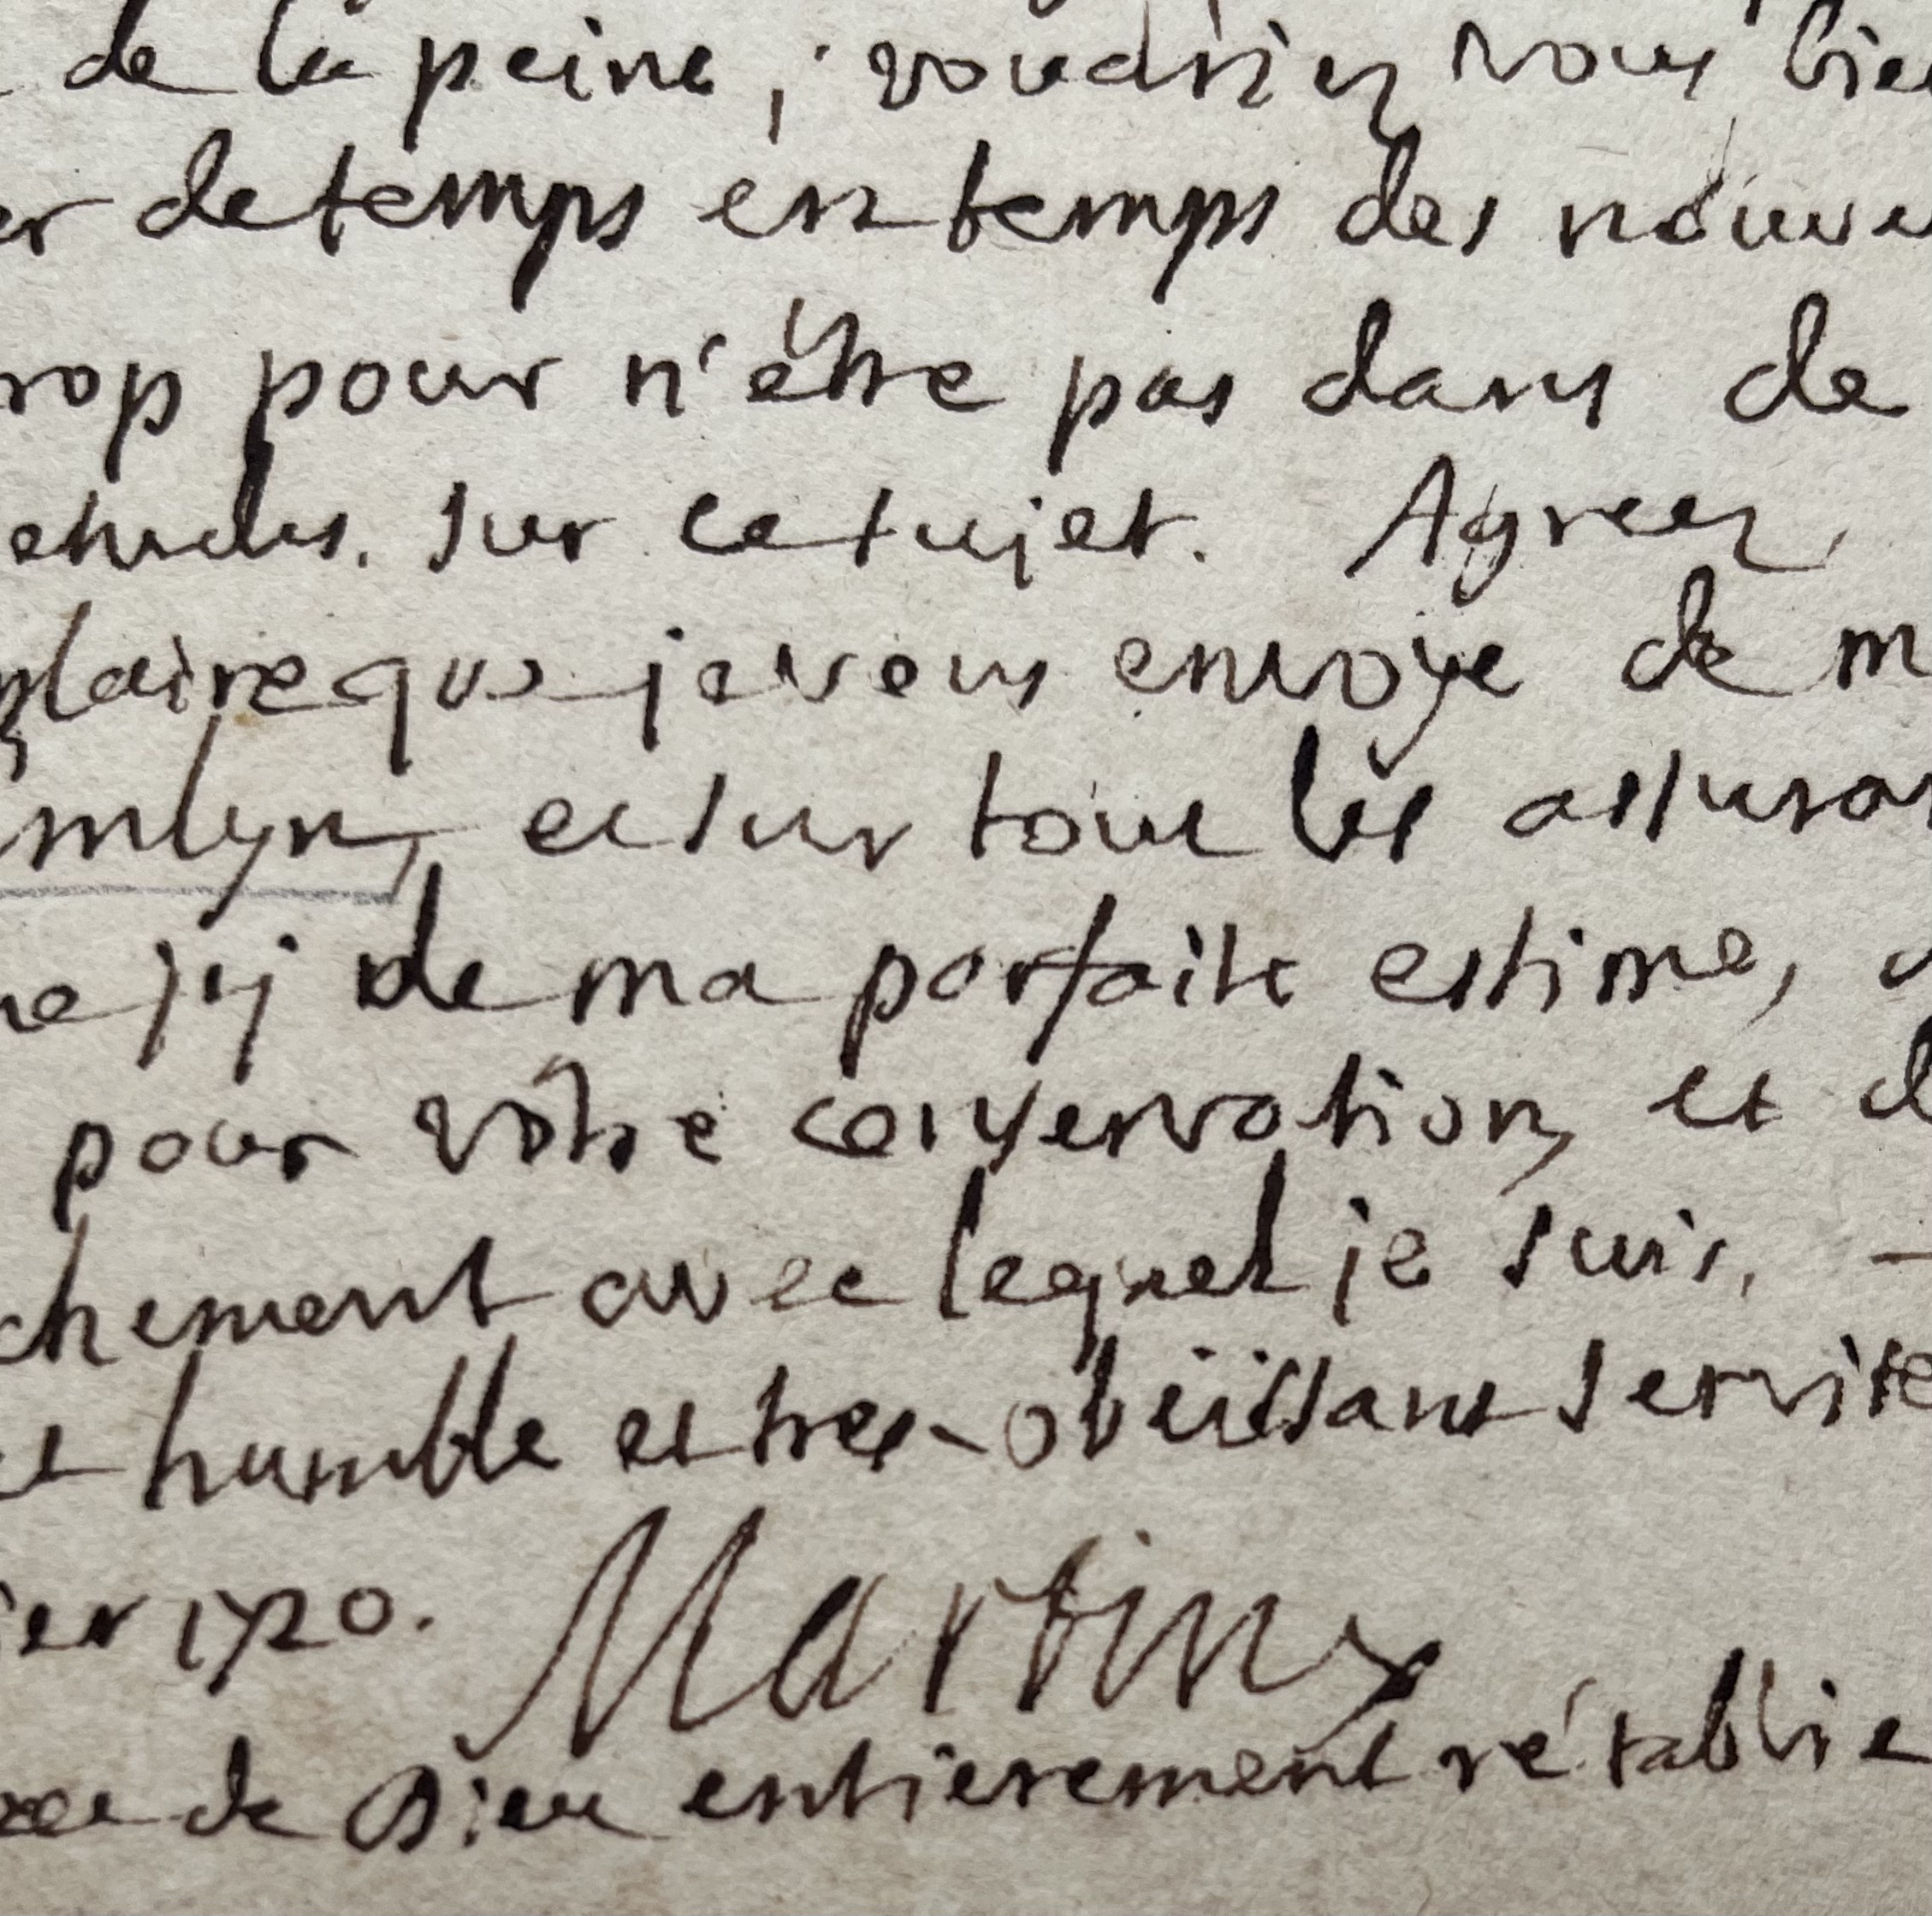 de la peine, voudriez vous bien
er de temps en temps des nouve
rop pour n'être pas dans de
etudes. sur ce sujet. Agreez,
plaire que je vous envoye de m
mlyn, et sur tout les assuran
ne j'ej de ma parfaite estime,
pour vôtre conservation, et d
chement avec lequel je suis,
humble et tres-obeïssant servite
ier 1720. Martin
de Dieu entierement rétablie